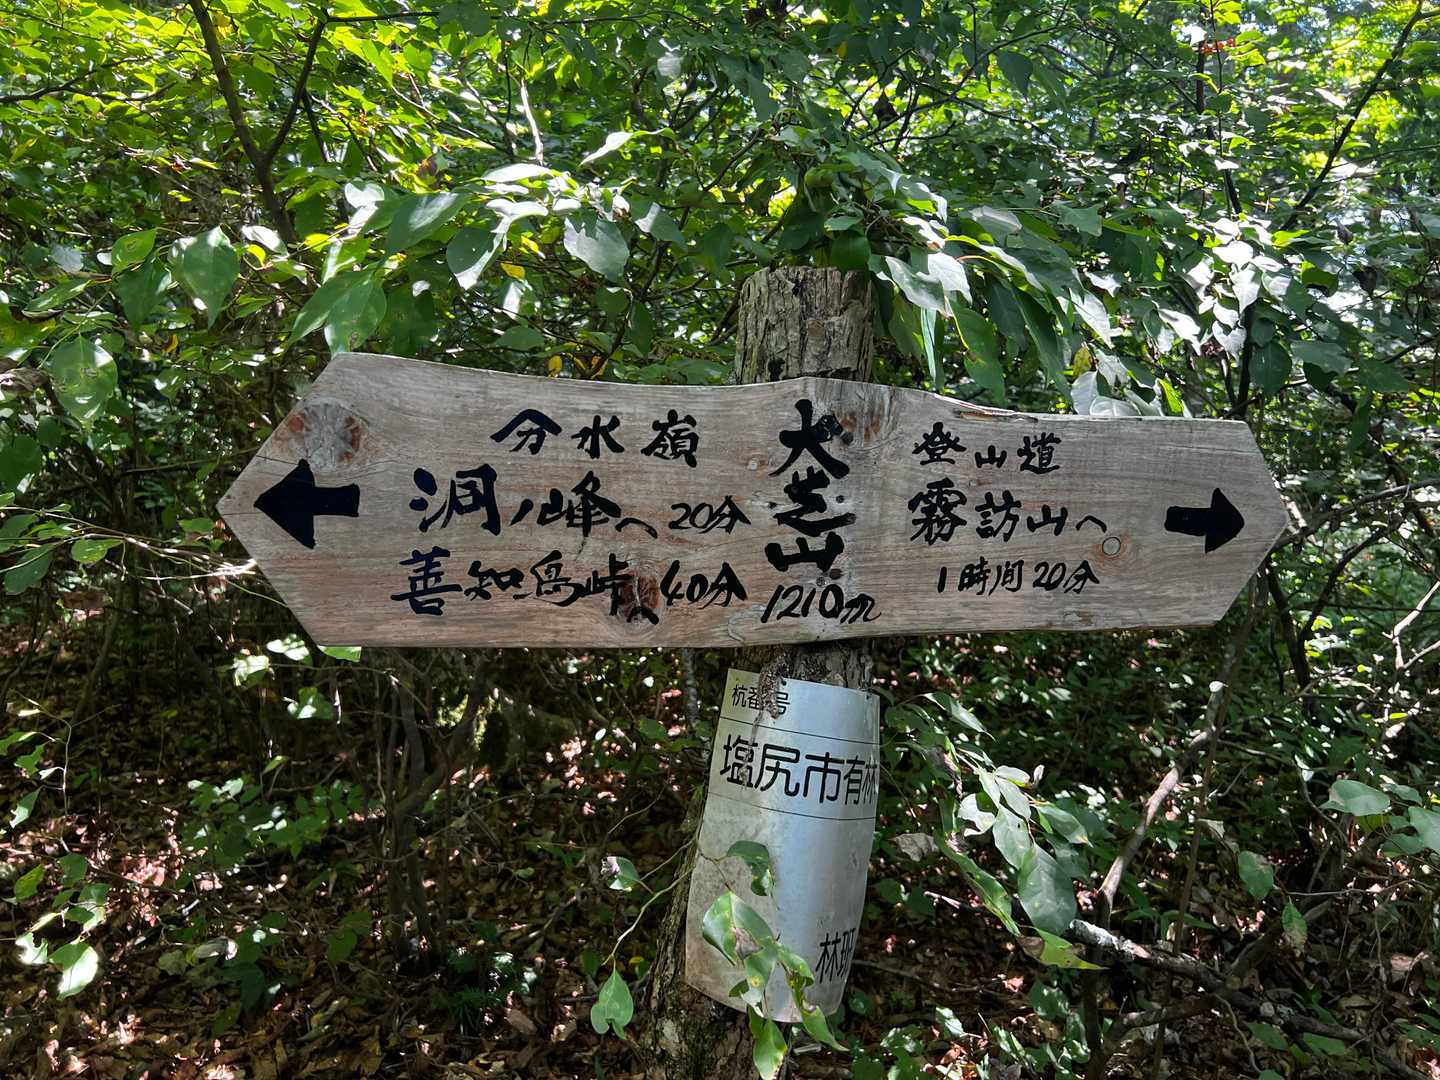 分水嶺
洞ノ峰へ 20分
善知鳥峠へ 40分
犬芝山
1210m
登山道
霧訪山へ
1時間20分
杭番号
塩尻市有林
林班